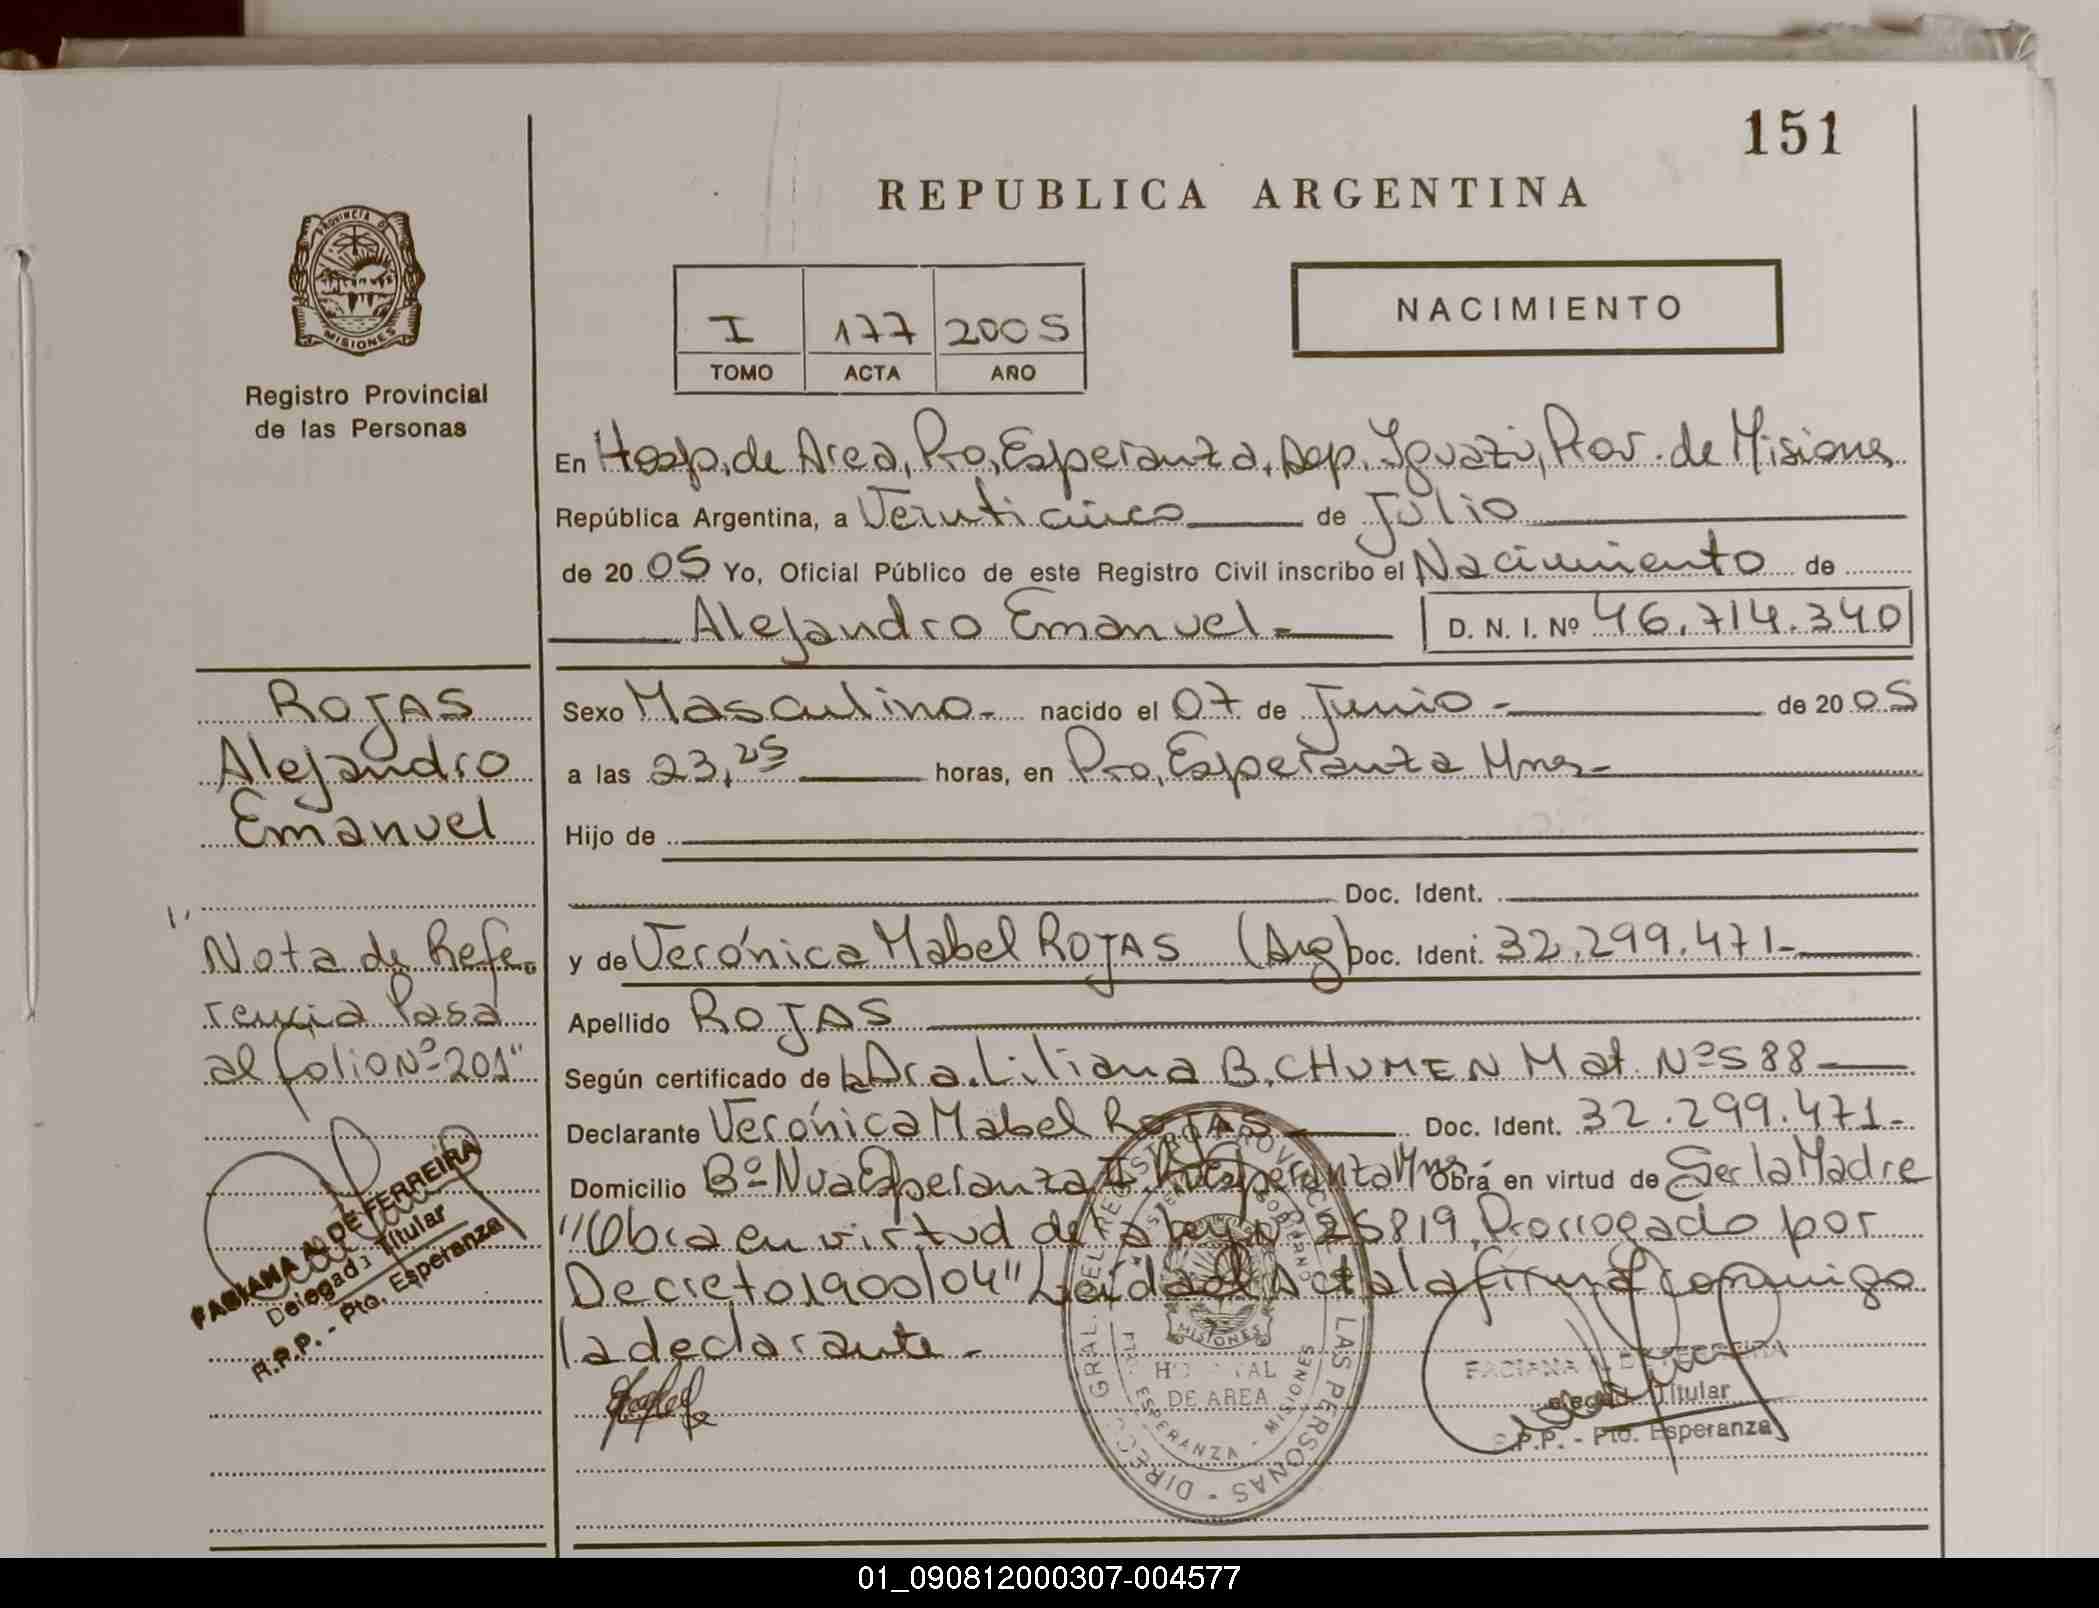 151
REPUBLICA ARGENTINA
PROVINCIA DE
MISIONES
Registro Provincial
de las Personas
I 177 2005
TOMO ACTA AÑO
NACIMIENTO
En Hosp. de Area, Pto, Esperanza, Dep. Iguazú, Prov. de Misiones
República Argentina, a Veinticinco de Julio
de 2005 Yo, Oficial Público de este Registro Civil inscribo el Nacimiento de
Alejandro Emanuel - D. N. I. Nº 46.714.340
ROJAS
Alejandro
Emanuel
"Nota de Refe-
rencia Pasa
al folio Nº 201"
FABIANA N. DE FERREIRA
Delegada Titular
R.P.P. - Pto. Esperanza
Sexo Masculino - nacido el 07 de Junio - de 2005
a las 23,25 horas, en Pto, Esperanza Mnes-
Hijo de
Doc. Ident.
y de Verónica Mabel ROJAS (Arg) Doc. Ident. 32.299.471-
Apellido ROJAS
Según certificado de la Dra. Liliana B. CHUMEN Mat. Nº 588
Declarante Verónica Mabel ROJAS Doc. Ident. 32.299.471-
Domicilio Bº Nva Esperanza I Pto Esperanza Mnes Obra en virtud de Ser la Madre
"Obra en virtud de la ley Nº 25819, Prorrogado por
Decreto 1900/04" Leída el Acta la firma conmigo
la declarante -
DIREC. GRAL. DEL REGISTRO PROVINCIAL DE LAS PERSONAS
MISIONES
HOSPITAL
DE AREA
PTO. ESPERANZA - MISIONES
FABIANA N. DE FERREIRA
Delegada Titular
R.P.P. - Pto. Esperanza
01_090812000307-004577